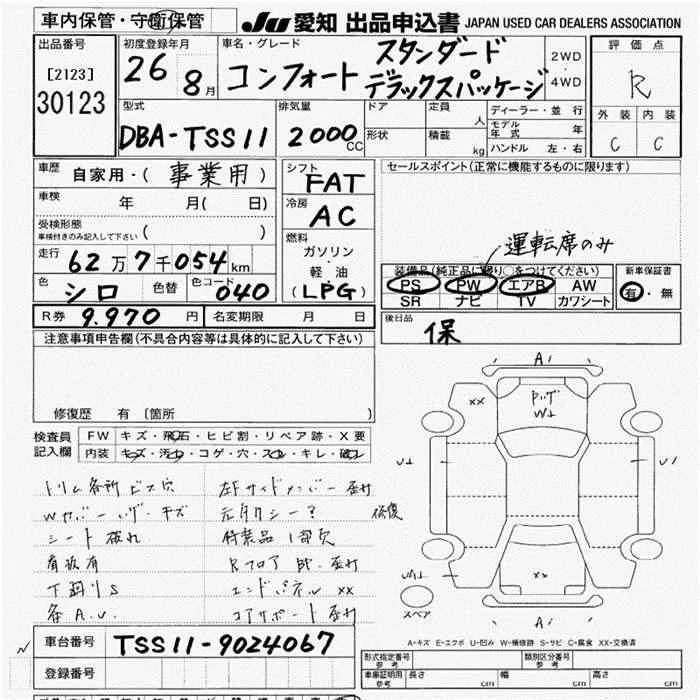 車内保管・守衛保管
JU 愛知 出品申込書 JAPAN USED CAR DEALERS ASSOCIATION
出品番号
[2123]
30123
初度登録年月
26 8月
車名・グレード
コンフォート スタンダード
デラックスパッケージ
2WD
4WD
評価点
R
外装 内装
C C
型式
DBA-TSS11
排気量
2000CC
ドア
形状
定員 人
積載 kg
ディーラー・並行
モデル年式 年
ハンドル 左・右
車歴
自家用・(事業用)
車検
年 月( 日)
受検形態
車検付きのみ記入して下さい ( )
走行
62万7千054km
色
シロ
色替
色コード
040
シフト
FAT
冷房
AC
燃料
ガソリン
・
軽・油
(LPG)
セールスポイント(正常に機能するものに限ります)
運転席のみ
装備品(純正品に限り○をつけてください)
PS PW エアB AW
SR ナビ TV カワシート
新車保証書
有・無
R券 9.970円
名変期限 月 日
後日品
保
注意事項申告欄(不具合内容等は具体的に記入して下さい)
修復歴 有 〔箇所
検査員
記入欄
FW キズ・飛石・ヒビ割・リペア跡・X要
内装 キズ・汚れ・コゲ・穴・スレ・キレ・破れ
トリム各所ビス穴
Wカバーハゲ・キズ
シート破れ
看板有
下廻りS
各A.U.
左Fサイドメンバー歪サ
元タクシー?
修復
特装品1部欠
Rフロア
エンドパネル XX
コアサポート歪サ
A1
XX
Pハゲ
W1
U1
XX
A1
スペア
A-キズ E-エクボ U-凹み W-補修跡 S-サビ C-腐食 XX-交換済
車台番号 TSS11-9024067
登録番号
型式指定番号
参考
類別区分番号
参考
車庫証明用
参考
長さ cm 幅 cm 高さ cm